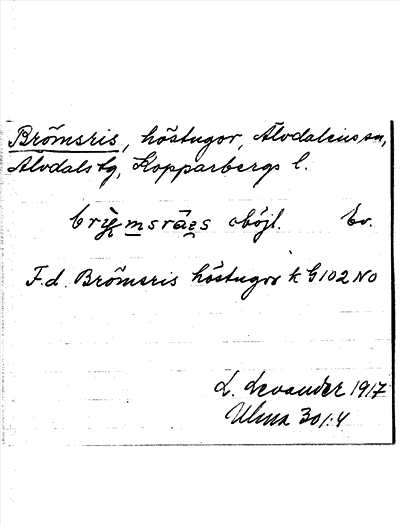 Brömsris, höstugor, Älvdalens sn,
Älvdals tg, Kopparbergs l.
brỳ̨msràes oböjl. Ev.
F.d. Brömsris höstugor k G102 NO
L. Levander 1917
Ulma 301:4